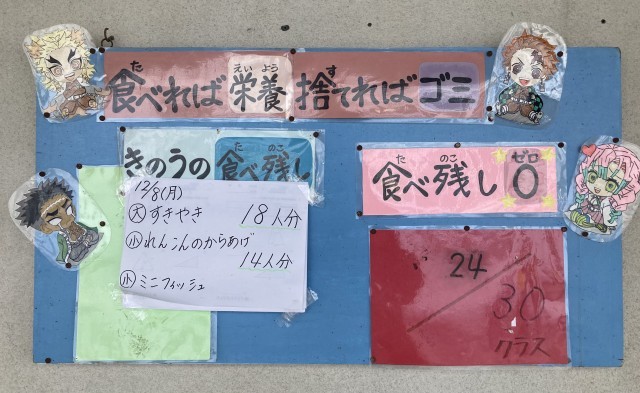 食べれば栄養 捨てればゴミ
きのうの食べ残し
12/8(月)
大 すきやき 18人分
小 れんこんのからあげ
14人分
小 ミニフィッシュ
食べ残し0
24/30
クラス